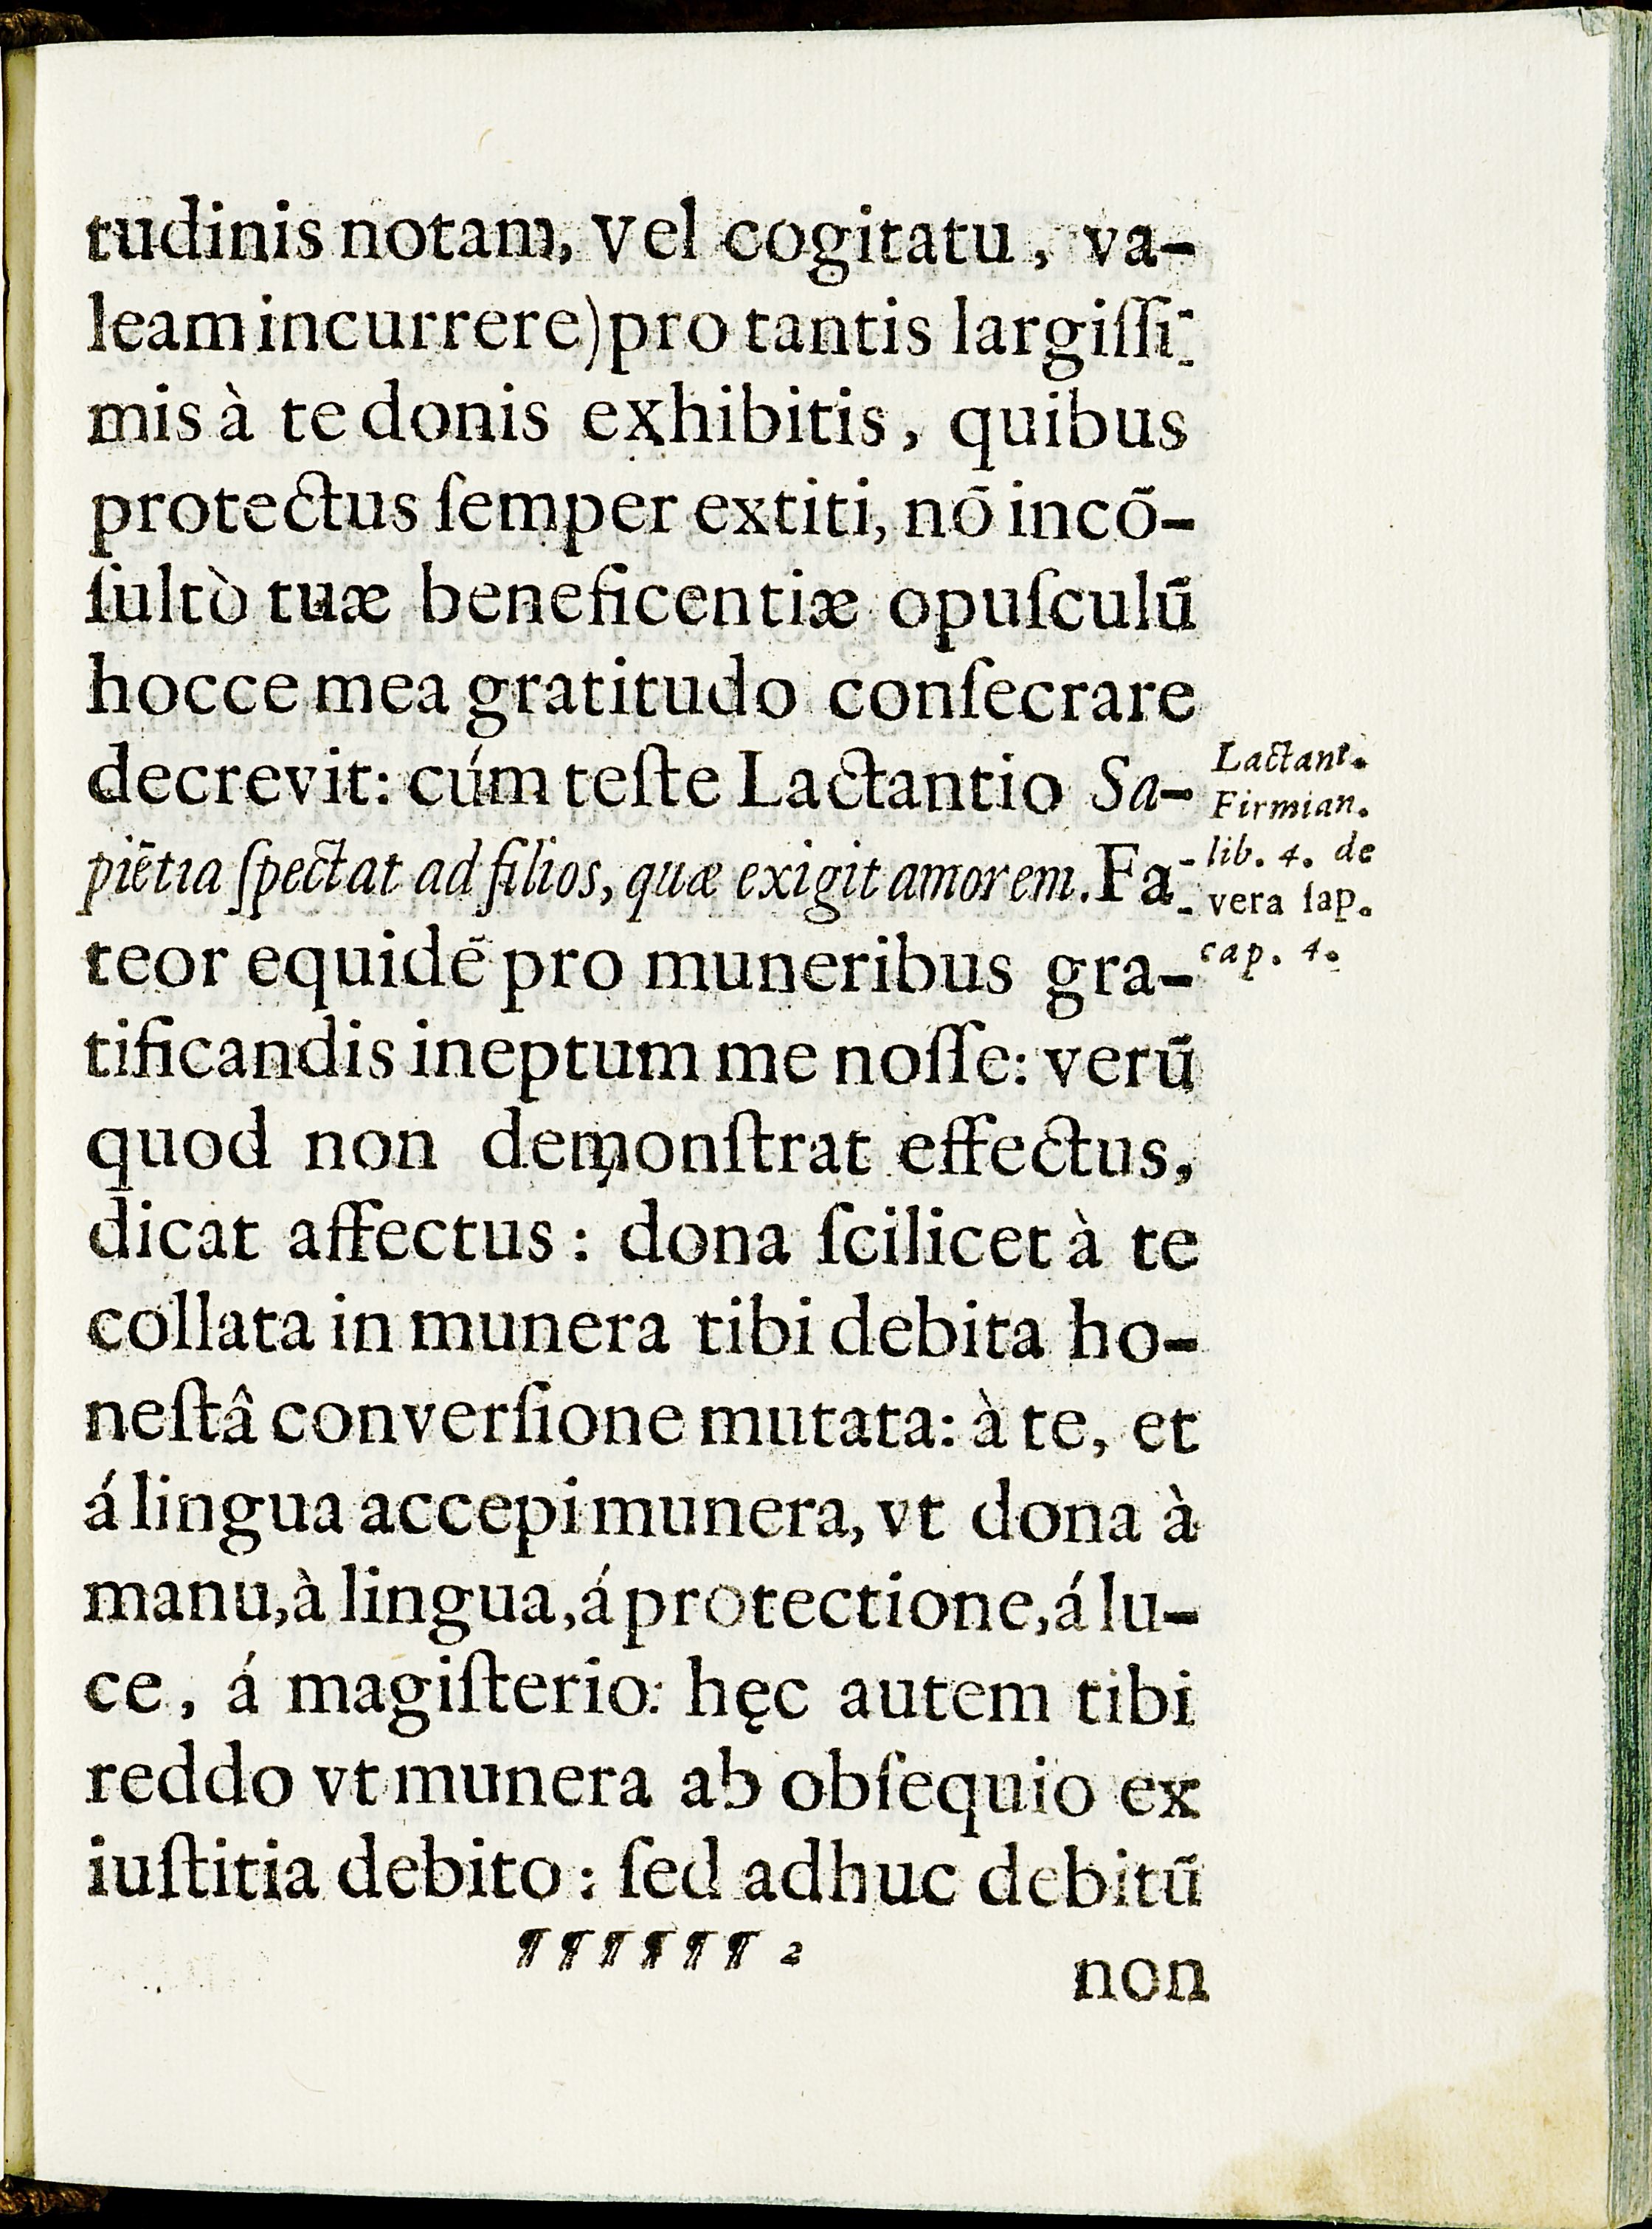 tudinis notam, vel cogitatu, va-
leam incurrere) pro tantis largiſſi-
mis à te donis exhibitis, quibus
protectus ſemper extiti, nō incō-
ſultò tuæ beneficentiæ opuſculū
hocce mea gratitudo conſecrare
decrevit: cúm teſte Lactantio Sa-
piētia ſpectat ad filios, quæ exigit amorem. Fa-
teor equidē pro muneribus gra-
tificandis ineptum me noſſe: verū
quod non demonſtrat effectus,
dicat affectus: dona ſcilicet à te
collata in munera tibi debita ho-
neſtâ converſione mutata: à te, et
á lingua accepi munera, vt dona à
manu, à lingua, á protectione, á lu-
ce, á magiſterio: hęc autem tibi
reddo vt munera ab obſequio ex
iuſtitia debito: ſed adhuc debitū
¶¶¶¶¶¶ 2
non
Lactant.
Firmian.
lib. 4. de
vera ſap.
cap. 4.